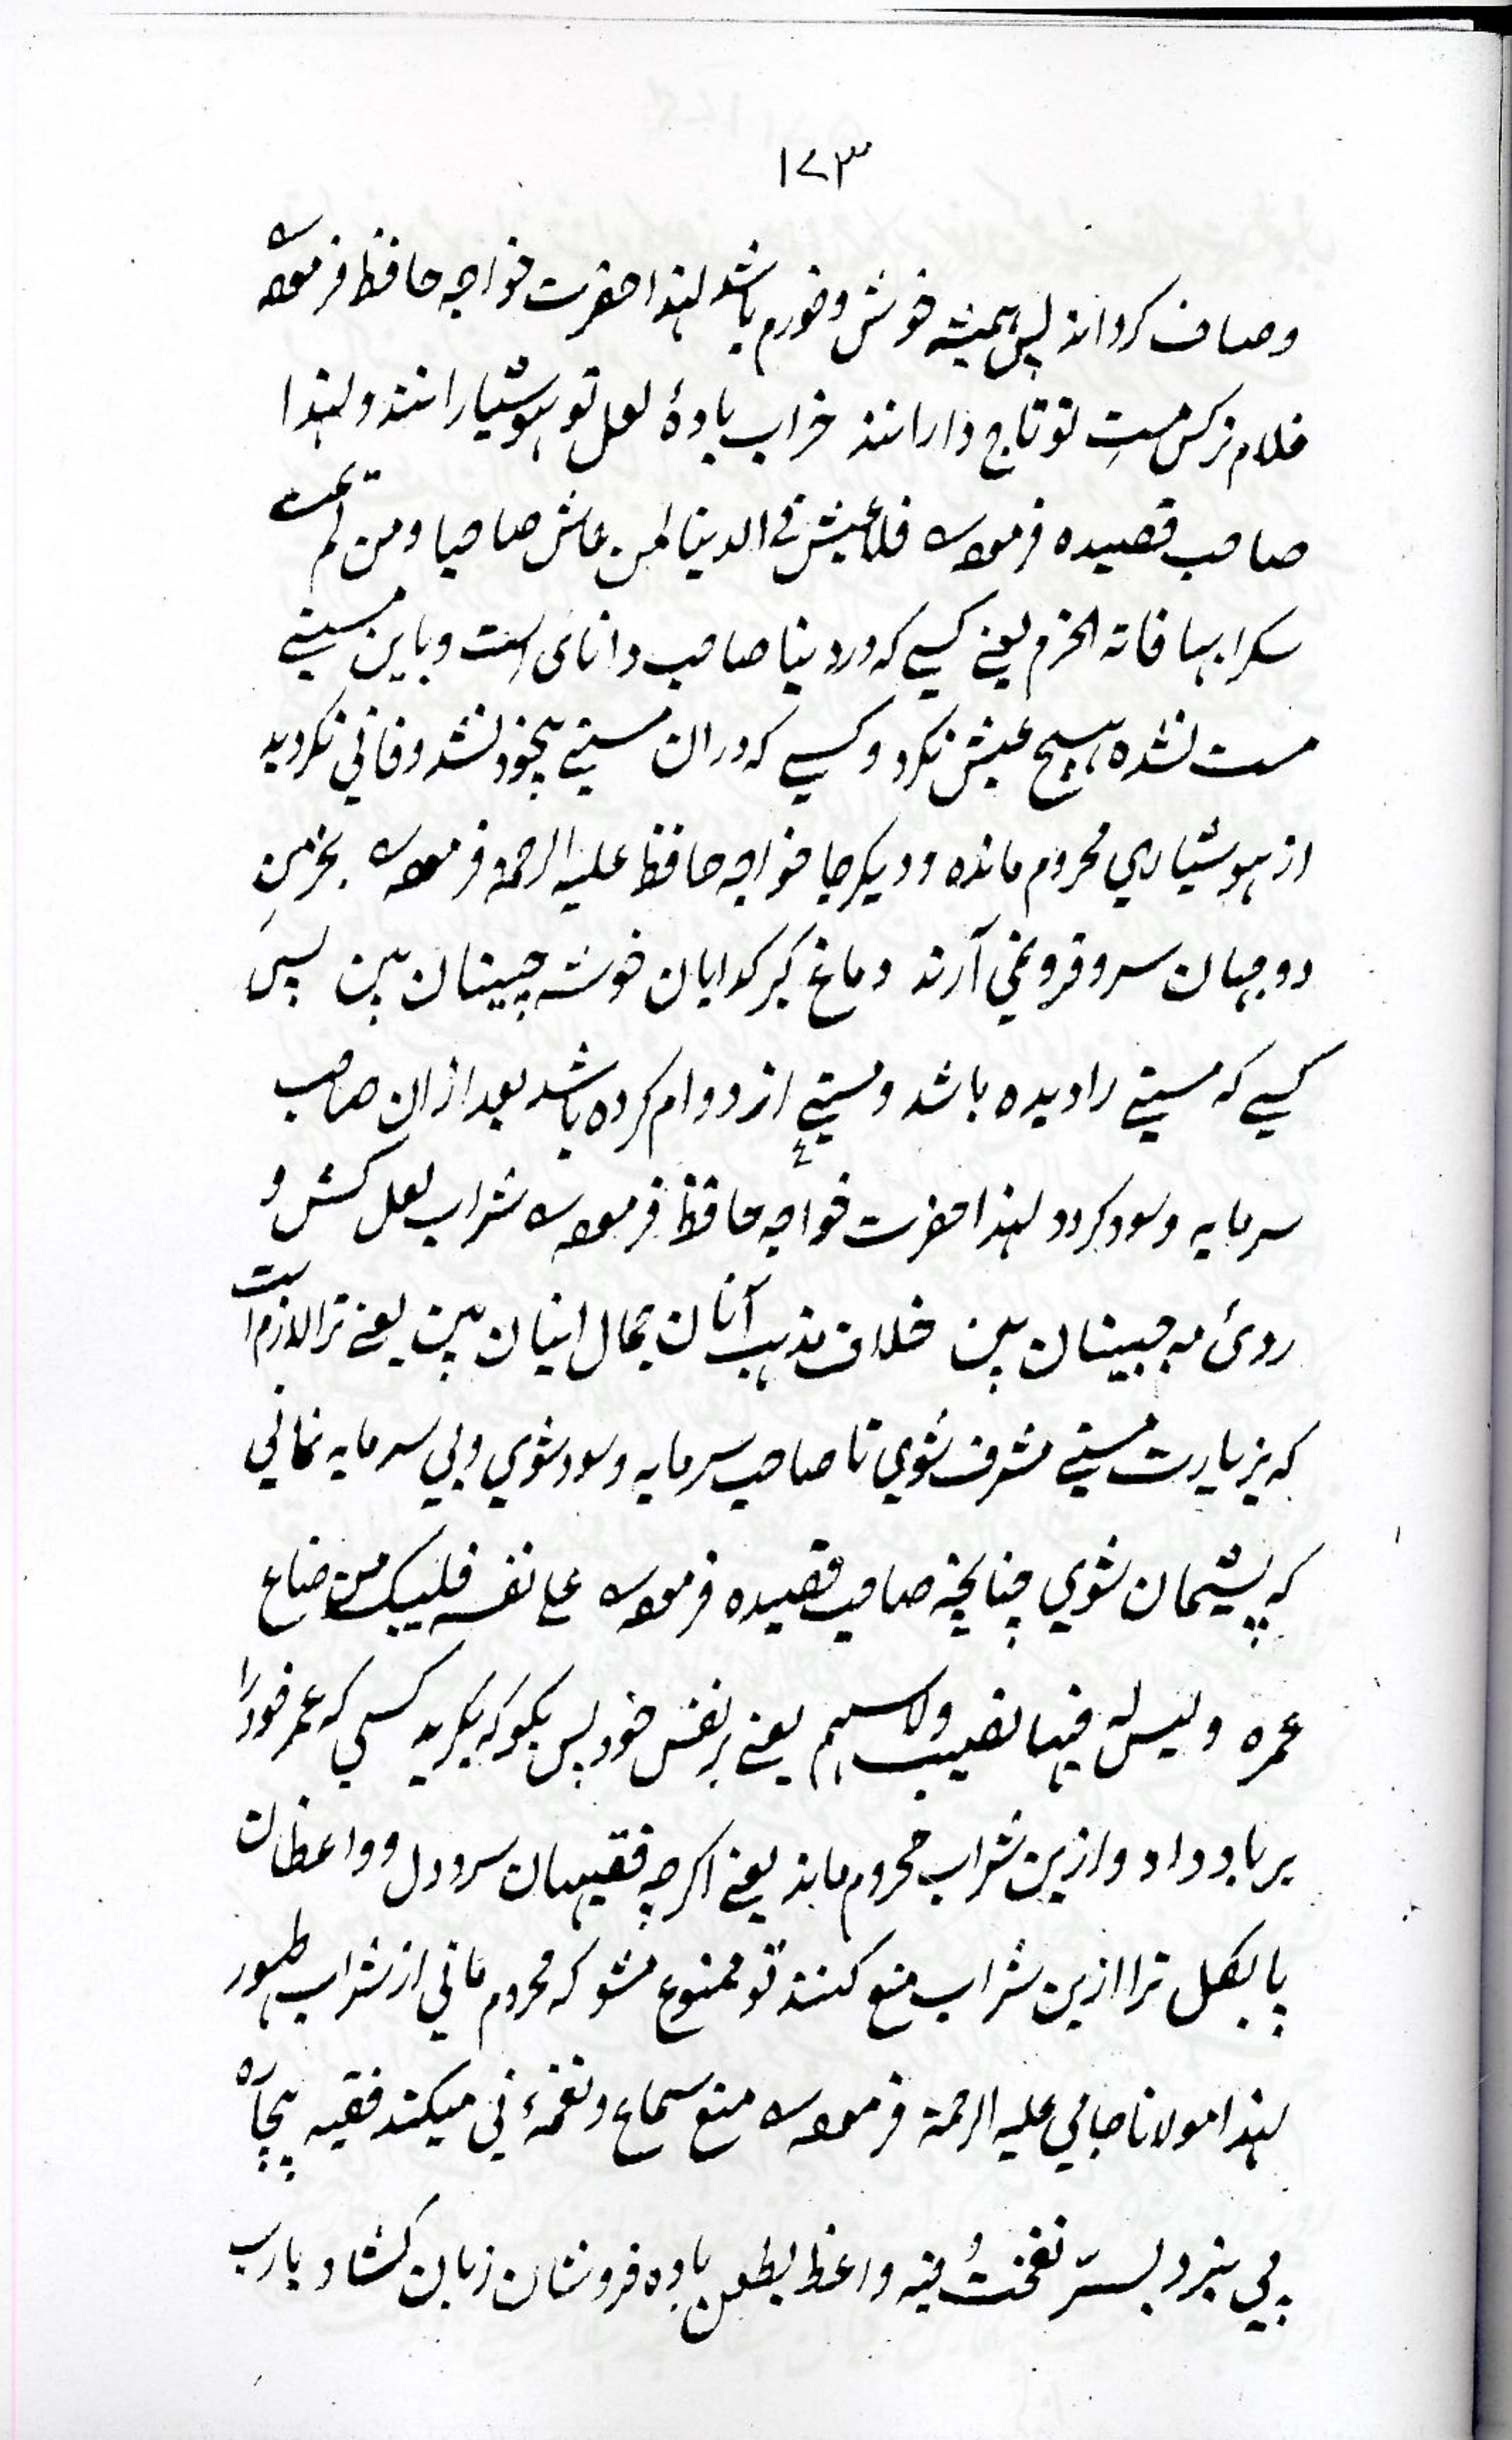 ۱۷۳
وصاف کرداند پس ہمیشہ خوش وخورم باشد لہذا حضرت خواجہ حافظ فرمودہ
غلام نرکس مستِ تو تاج دارانند خراب بادۂ لعل تو ہوشیارانند ولہذا
صاحب قصیدہ فرمودہ فلا عیش فے الدنیا لمن عاش صاحیا ومن لم یمت
سکرا بہا فاتہ الحزم یعنے کسے کہ در دینا صاحب دانائی است وباین مستے
مست نشدہ ہیچ عیش نکرد وکسے کہ در ان مستے بیخود نشد وفانی نکردید
از ہوشیاری محروم ماندہ ودیکر جا خواجہ حافظ علیہ الرحمۃ فرمودہ بخرمنِ
دوجہان سر وفرو نمی آرند دماغ کبر کدایان خوشہ چینان بین پس
کسے کہ مستے را دیدہ باشد ومستےٕ از دوام کردہ باشد بعد ازان صاحب
سرمایہ وسود کردد لہذا حضرت خواجہ حافظ فرمودہ شراب لعل کش و
روئ مہ جبینان بین خلاف مذہب آنان جمال اینان بین یعنے ترا لازم است
کہ بزیارت مستے مشرف شوی تا صاحب سرمایہ وسود شوی وبی سرمایہ نمانی
کہ پشیمان شوی چنانچہ صاحب قصیدہ فرمودہ علے نفسہ فلیبک من ضاع
عمرہ ولیس لہ فیہا نصیب ولا سہم یعنے بر نفس خود پس بکو کہ بکرید کسی کہ عمر خود را
برباد داد وازین شراب محروم ماند یعنے اکرچہ فقیہان سرد دل وواعظان
پا بکل ترا ازین شراب منع کنند تو ممنوع مشو کہ محروم مانی از شراب طہور
لہذا مولانا جامی علیہ الرحمۃ فرمودہ منع سماع ونغمۂ نی میکند فقیہ بیچارہ
پی نبرد بسرّ نفختُ فیہ واعظ بطعن بادہ فروشان زبان کشاد یارب